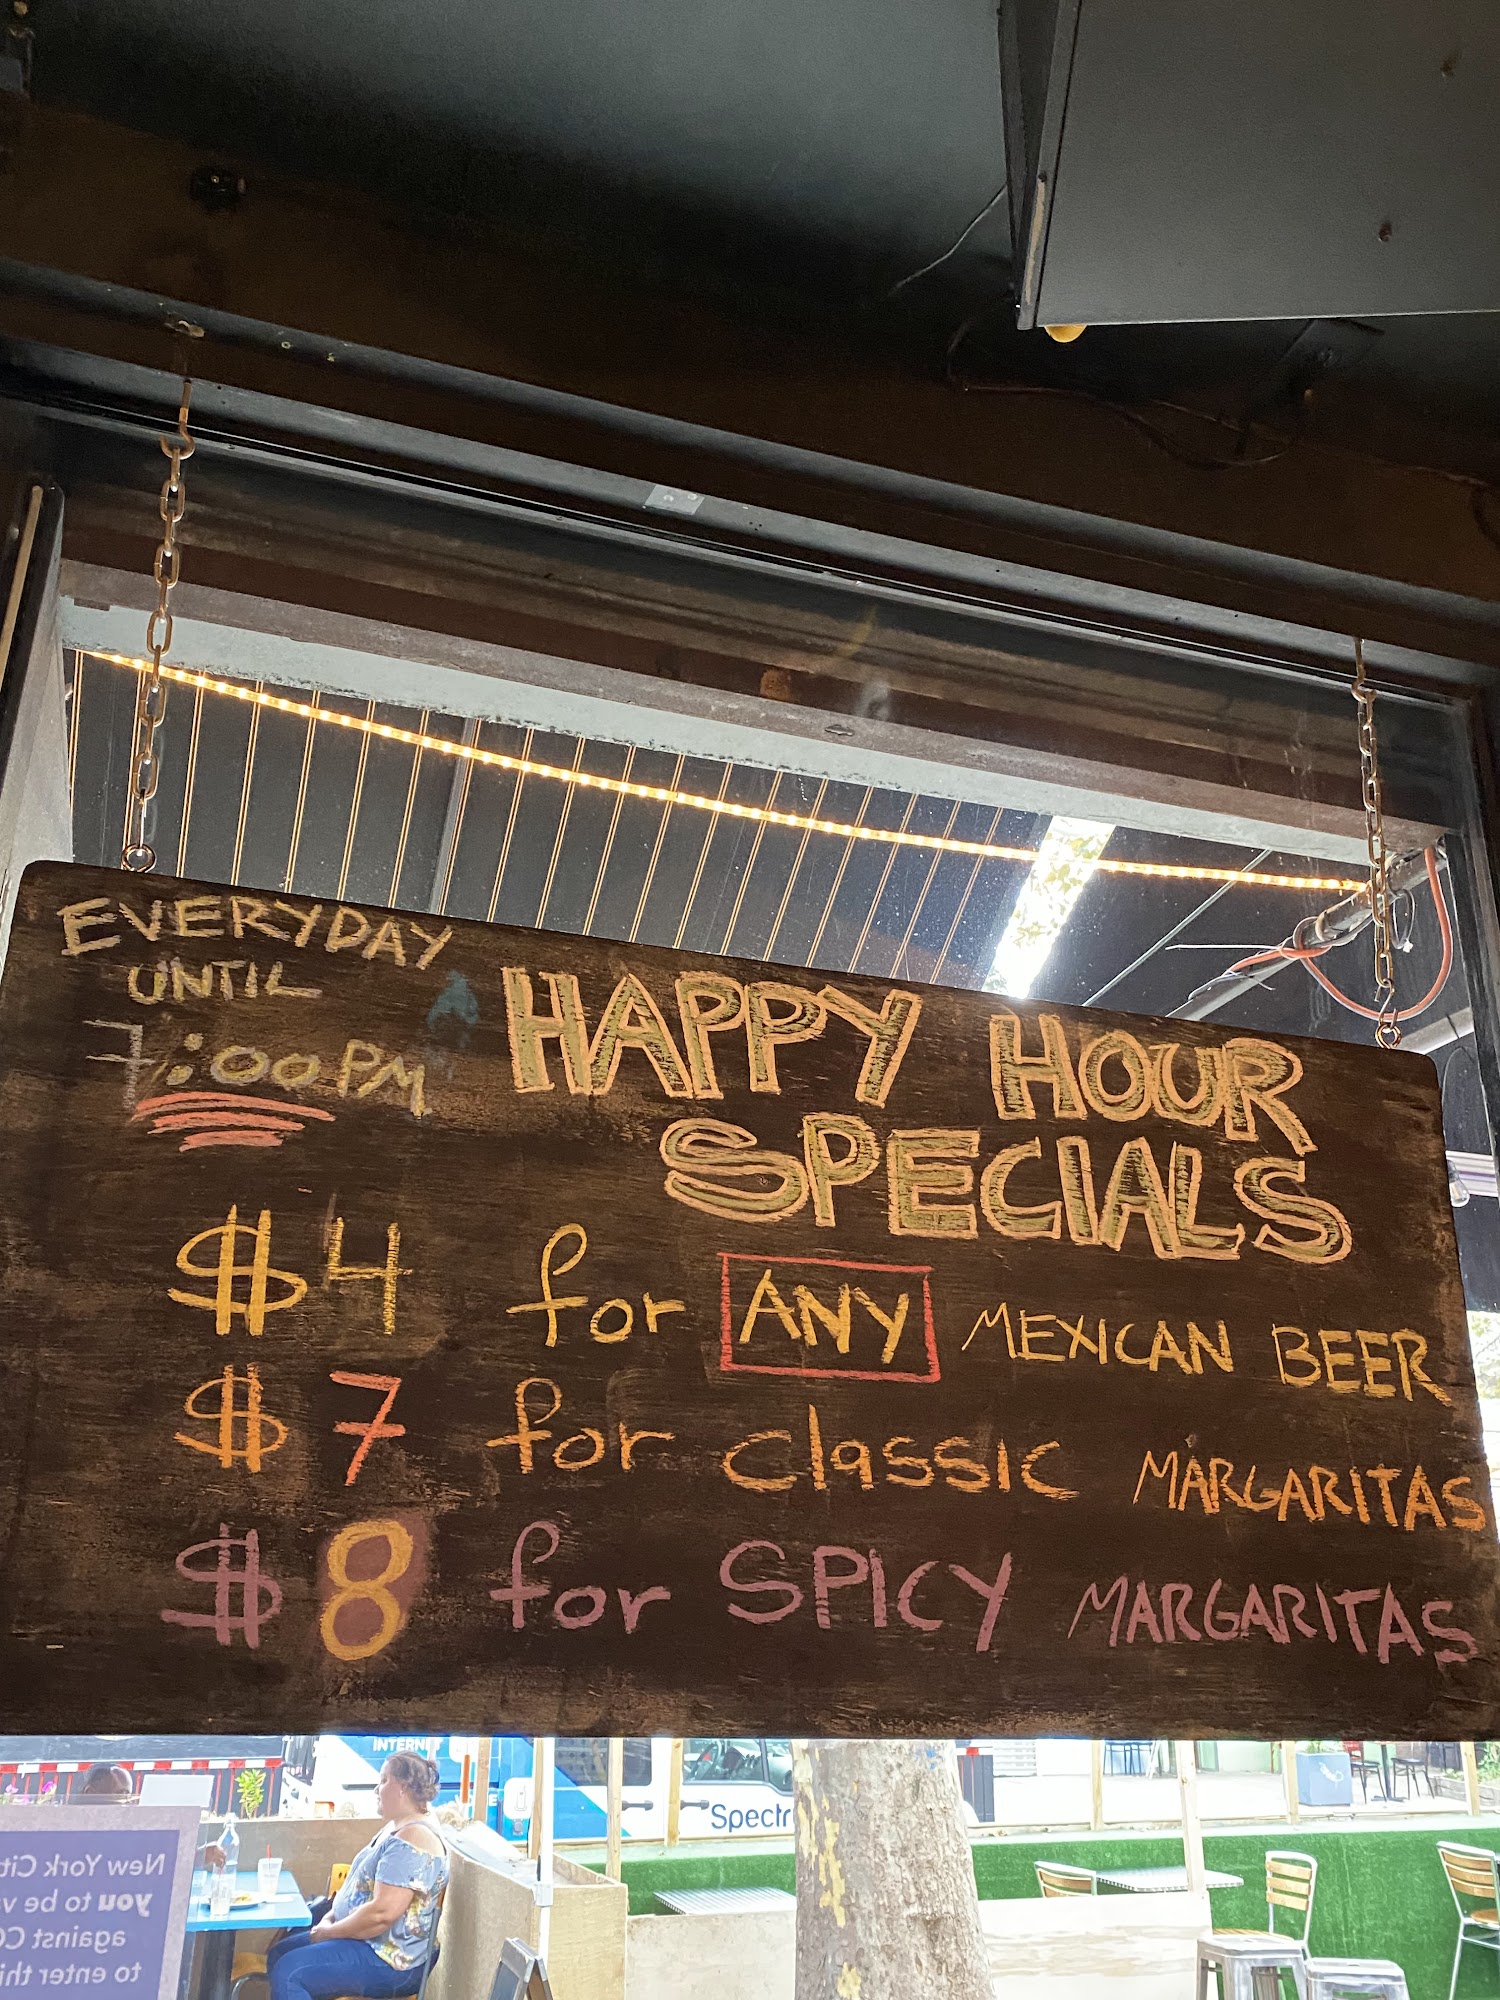 EVERYDAY
UNTIL
7:00PM
HAPPY HOUR
SPECIALS
$4 for ANY MEXICAN BEER
$7 for classic MARGARITAS
$8 for SPICY MARGARITAS
INTERNET
Spectr
New York Cit
to be you
against CO
to enter thi